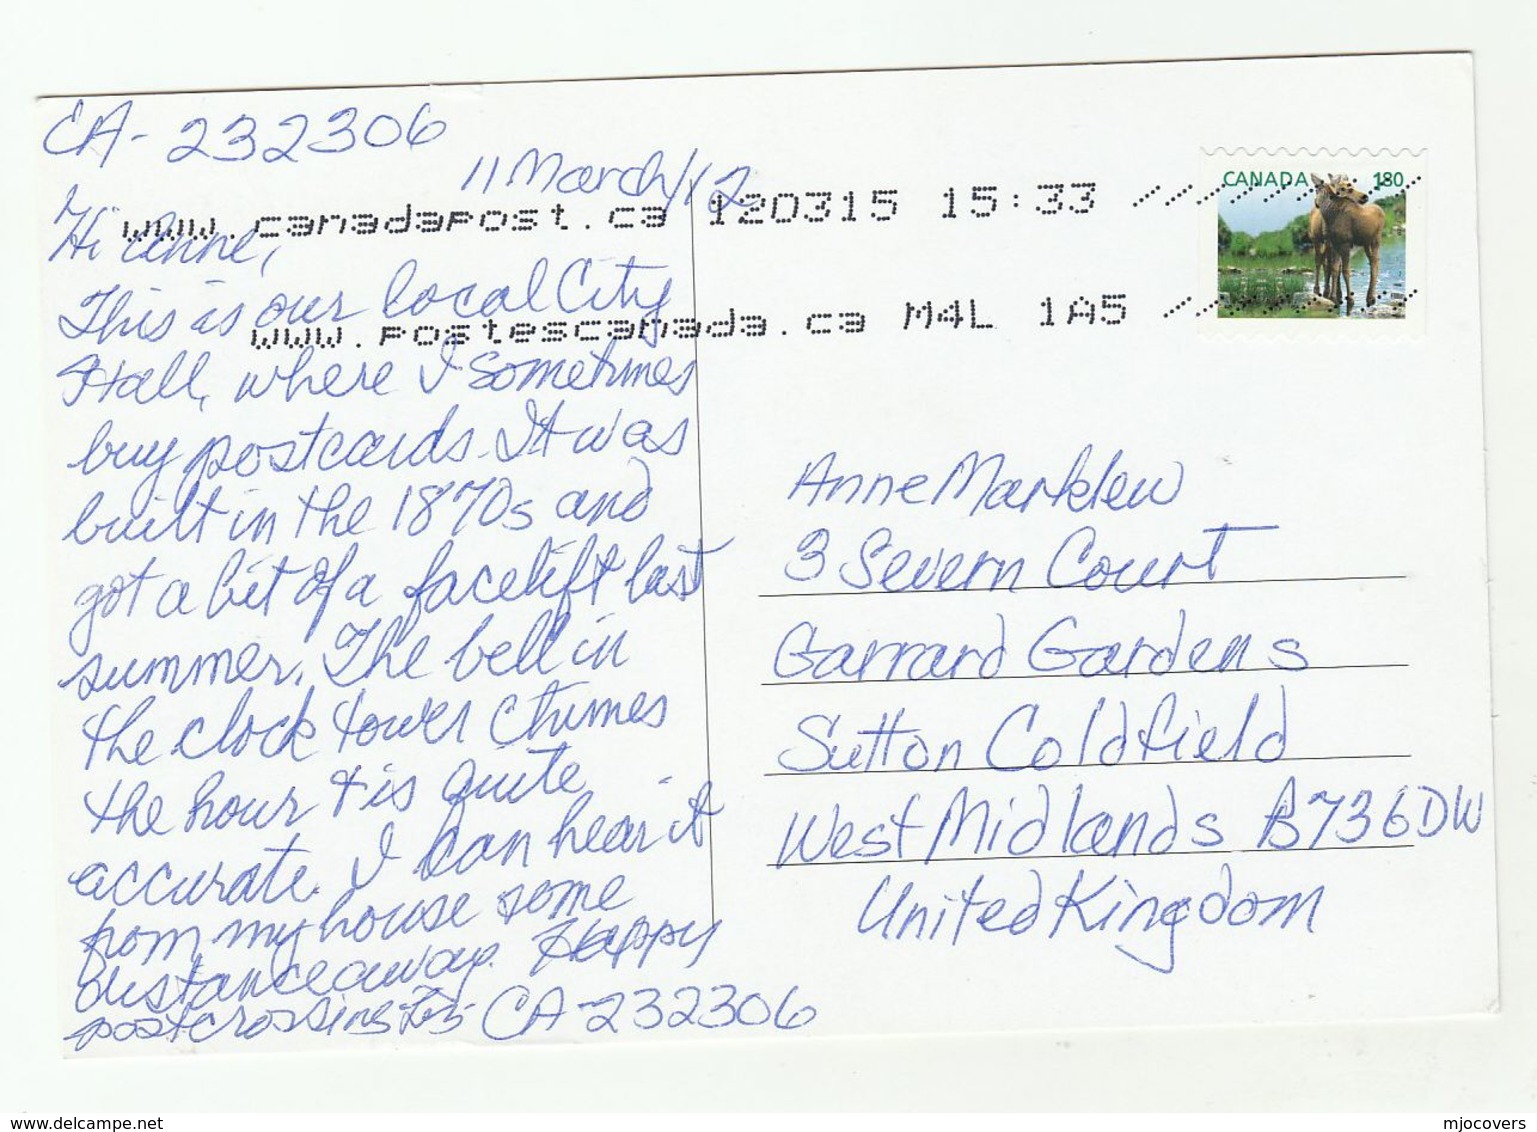 CA-232306
11 March/12
www.canadapost.ca 120315 15:33
www.postescanada.ca M4L 1A5
CANADA 180
Hi Anne,
This is our local City
Hall, where I sometimes
buy postcards. It was
built in the 1870s and
got a bit of a facelift last
summer. The bell in
the clock tower chimes
the hour + is quite
accurate. I can hear it
from my house some
distance away. Happy
postcrossing CA-232306
Anne Marklew
3 Severn Court
Garrard Gardens
Sutton Coldfield
West Midlands B736DW
United Kingdom
delcampe.net
mjocovers